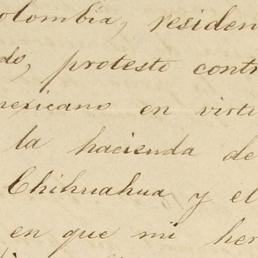 olombia, residen
do, proteste contr
mexicano en virtu
la hacienda de
Chihuahua y el
en que mi her